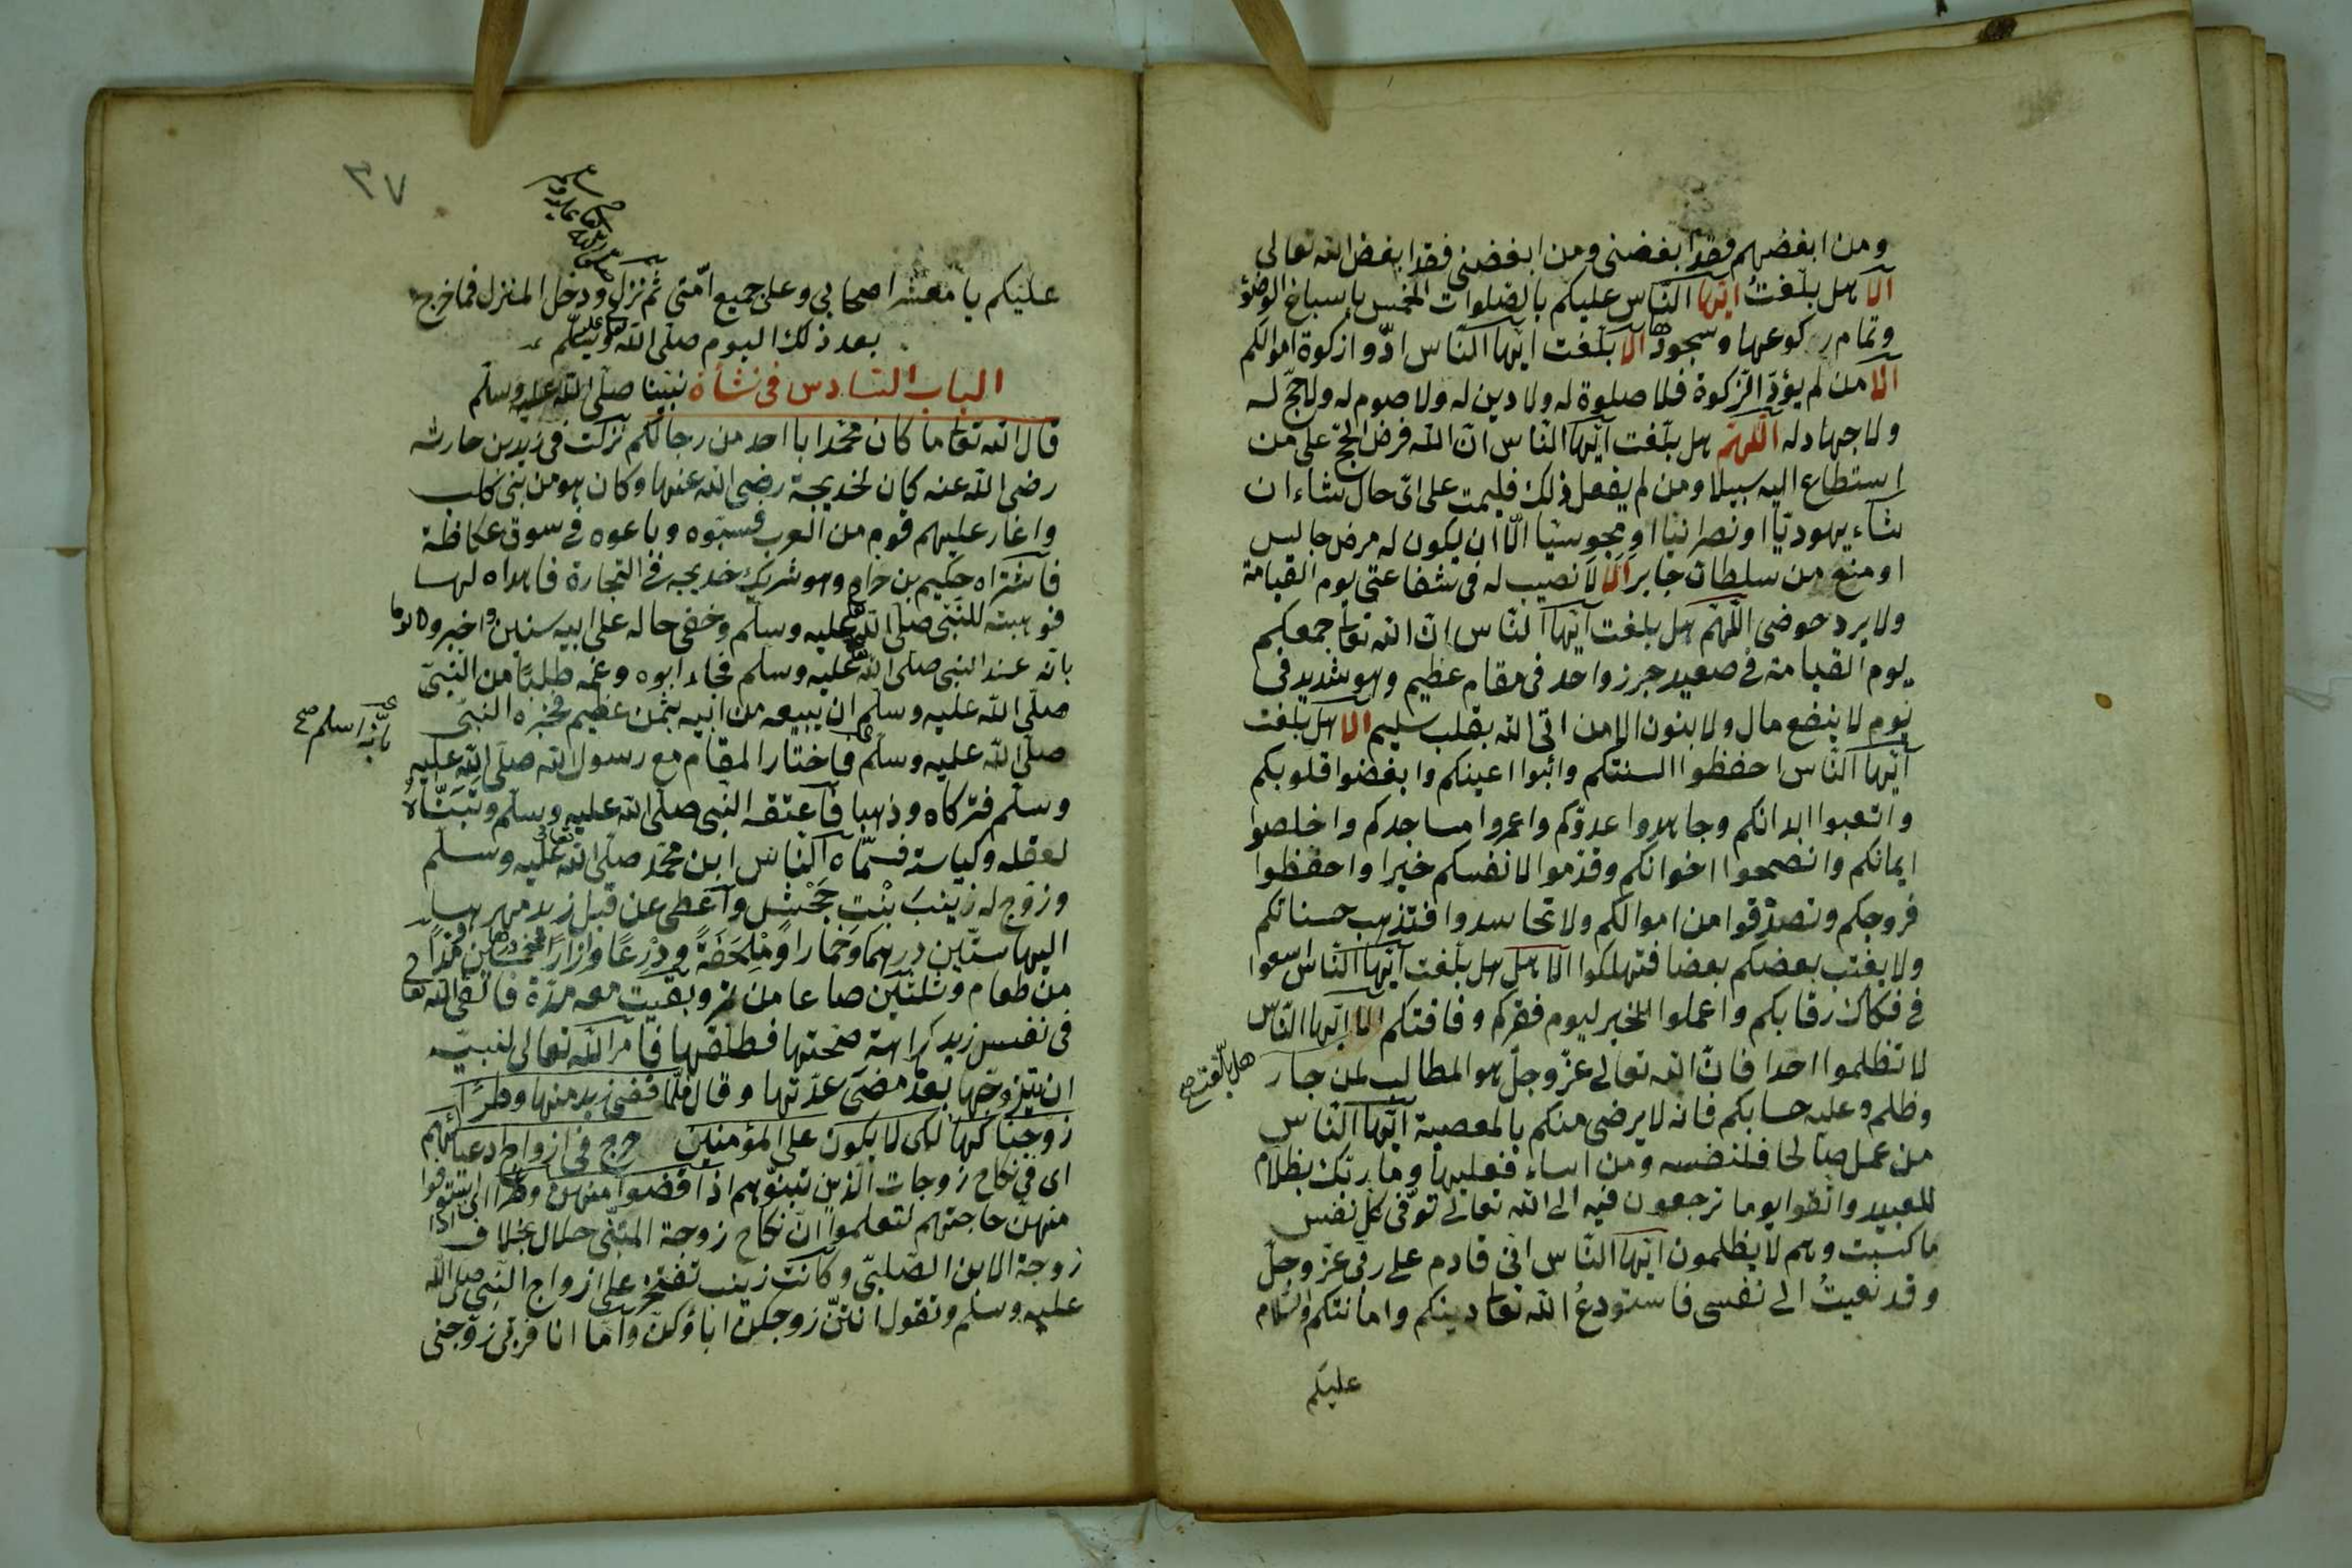 ومن ابغضهم فقد ابغضنى ومن ابغضنى فقد ابغض الله تعالى
الا هل بلّغتُ ايّها النّاس عليكم بالصّلوات الخمس باسباغ الوضؤ
وتمام ركوعها وسجودها الا بلّغت ايّها النّاس ادّوا زكوة اموالكم
الا من لم يؤدّ الزّكوة فلا صلوة له ولا دين له ولا صوم له ولا حجّ له
ولا جهاد له اللّهمّ هل بلّغت ايّها النّاس انّ اللّه فرض الحجّ على من
استطاع اليه سبيلا ومن لم يفعل ذلك فليمت على اىّ حال شاء ان
شاء يهوديّا او نصرانيّا او مجوسيّا الّا ان يكون له مرض حابس
او منع من سلطان جابر الا لا نصيب له فى شفاعتى يوم القيامة
ولا يرد حوضى اللّهمّ هل بلغت ايّها النّاس انّ الله تعا جمعكم
يوم القيامة فى صعيد جرز واحد فى مقام عظيم وهو شديد فى
يوم لا ينفع مال ولا بنون الا من اتى الله بقلب سليم الا هل بلّغت
ايّها النّاس احفظوا السنتكم وابكوا اعينكم وابغضوا قلوبكم
واتعبوا ابدانكم وجاهدوا عدوّكم واعمروا مساجدكم واخلصوا
ايمانكم وانصحوا اخوانكم وقدّموا لانفسكم خيرا واحفظوا
فروجكم وتصدّقوا من اموالكم ولا تحاسدوا فتذهب حسناتكم
ولا يغتب بعضكم بعضا فتهلكوا الا هل هل بلّغت ايّها النّاس اسعوا
فى فكاك رقابكم واعملوا الخير ليوم فقركم وفاقتكم الا ايّها النّاس
هل بلّغت صح
لا تظلموا احدا فانّ الله تعالى عزّ وجلّ هو المطالب لمن جار
وظلم وعليه حسابكم فانه لا يرضى منكم بالمعصية ايّها النّاس
من عمل صالحا فلنفسه ومن اساء فعليها وما ربّك بظلّام
للعبيد واتّقوا يوما ترجعون فيه الى الله تعالى توفّى كلّ نفس
ما كسبت وهم لا يظلمون ايّها النّاس انى قادم على ربى عزّ وجلّ
وقد نعيتُ الى نفسى فاستودعُ اللّه تعا دينكم وامانتكم والسّلام
عليكم
٣٧
عليكم يا معشر اصحابى وعلى جميع امّتى ثم نزل ودخل المنزل فما خرج
بعد ذلك اليوم صلّى اللّه عليه وسلّم
الباب السّادس فى نشأة نبيّنا صلّى اللّه عليه وسلّم
قال الله تعا ما كان محمّد ابا احد من رجالكم نزلت فى زيد بن حارثه
رضى اللّه عنه كان لخديجة رضى الله عنها وكان هو من بنى كلب
واغار عليهم قوم من العرب فسبّوه وباعوه فى سوق عكاظة
فاشتراه حكيم بن حزام وهو شريك خديجه فى التجارة فاهداه لها
فوهبته للنّبىّ صلّى اللّه عليه وسلّم وخفى حاله على ابيه سنين واخبروه يوما
بانّه عند النبى صلّى اللّه عليه وسلّم فجاء ابوه وعمه طلبًا من النبىّ
صلّى اللّه عليه وسلّم ان يبيعه من ابيه بثمن عظيم فخيّره النبىّ
بانّه اسلم صح
صلّى اللّه عليه وسلّم فاختار المقام مع رسول الله صلّى الله عليه
وسلّم فتركاه وذهبا فاعتقه النبى صلّى اللّه عليه وسلّم وتبنّاهُ
لعقله وكياسته فسمّاه النّاس ابن محمّد صلّى اللّه تعالى عليه وسلّم
وزوّج له زينبَ بنْتِ جَحْشٍ واعطى عن قبل زيد مهرها
اليها ستّين درهما وخمارا ومِلحَفَةً ودِرْعًا وازارًا وخمسين مُدًّا
من طعام وثلثين صاعا من تمر وبقيت معه مدّة فالقى الله تعا
فى نفس زيد كراهة صحبتها فطلّقها فامر اللّه تعالى لنبيّه
ان يتزوّجها بعد مضى عدّتها وقال فلمّا قضى زيد منها وطرًا
زوّجناكها لكى لا يكون على المؤمنين حرج فى ازواج ادعيائهم
اى فى نكاح زوجات الذين تبنّوهم اذا قضوا منهن وطرًا اى استوفوا
منهنّ حاجتهم لتعلموا انّ نكاح زوجة المتبنّى حلال بخلاف
زوجة الابن الصّلبىّ وكانت زينب تفتخر على ازواج النّبىّ صلى الله
عليه وسلّم وتقول انتنّ زوجكنّ اباؤكنّ وامّا انا فربّى زوّجنى